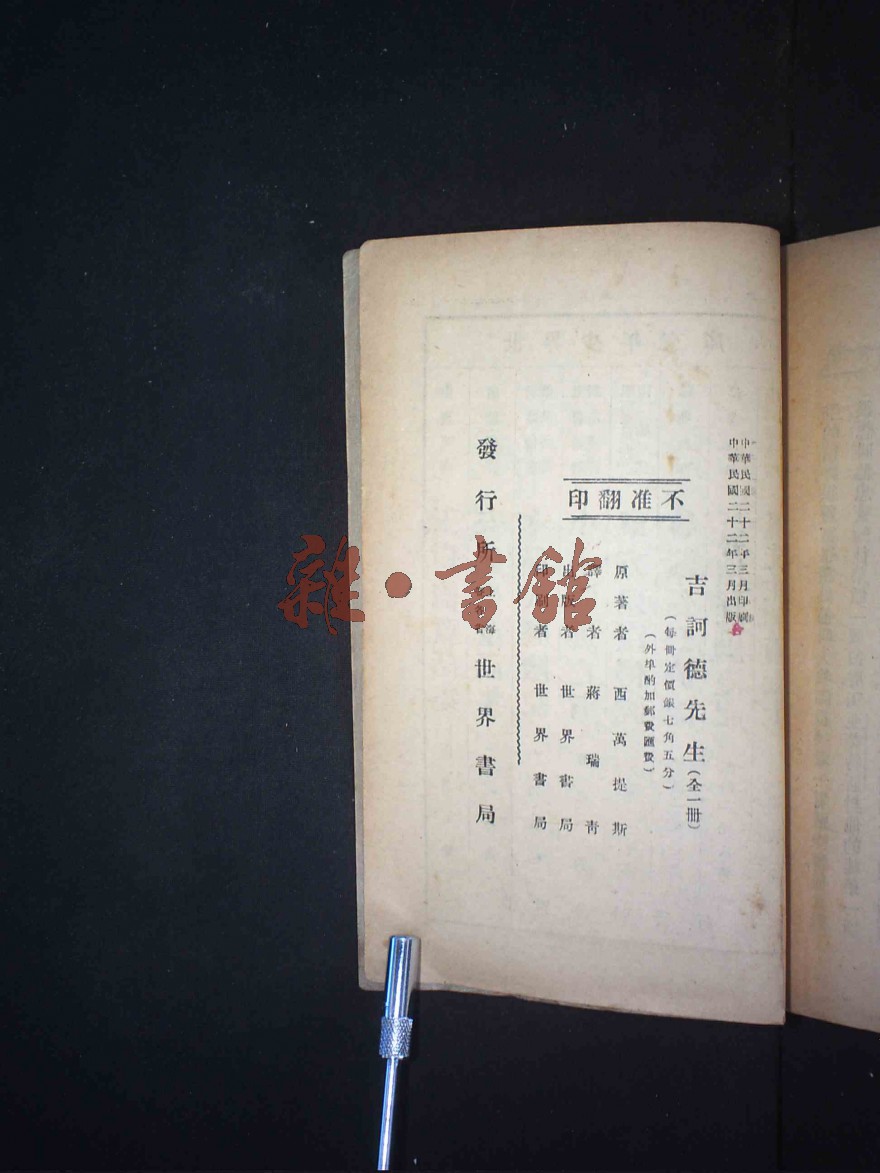 中華民國二十二年三月印刷
中華民國二十二年三月出版
吉訶德先生(全一冊)
(每冊定價銀七角五分)
(外埠酌加郵費匯費)
不准翻印
原著者 西萬提斯
譯者 蔣瑞青
出版者 世界書局
印刷者 世界書局
發行所 上海 世界書局
雜·書館